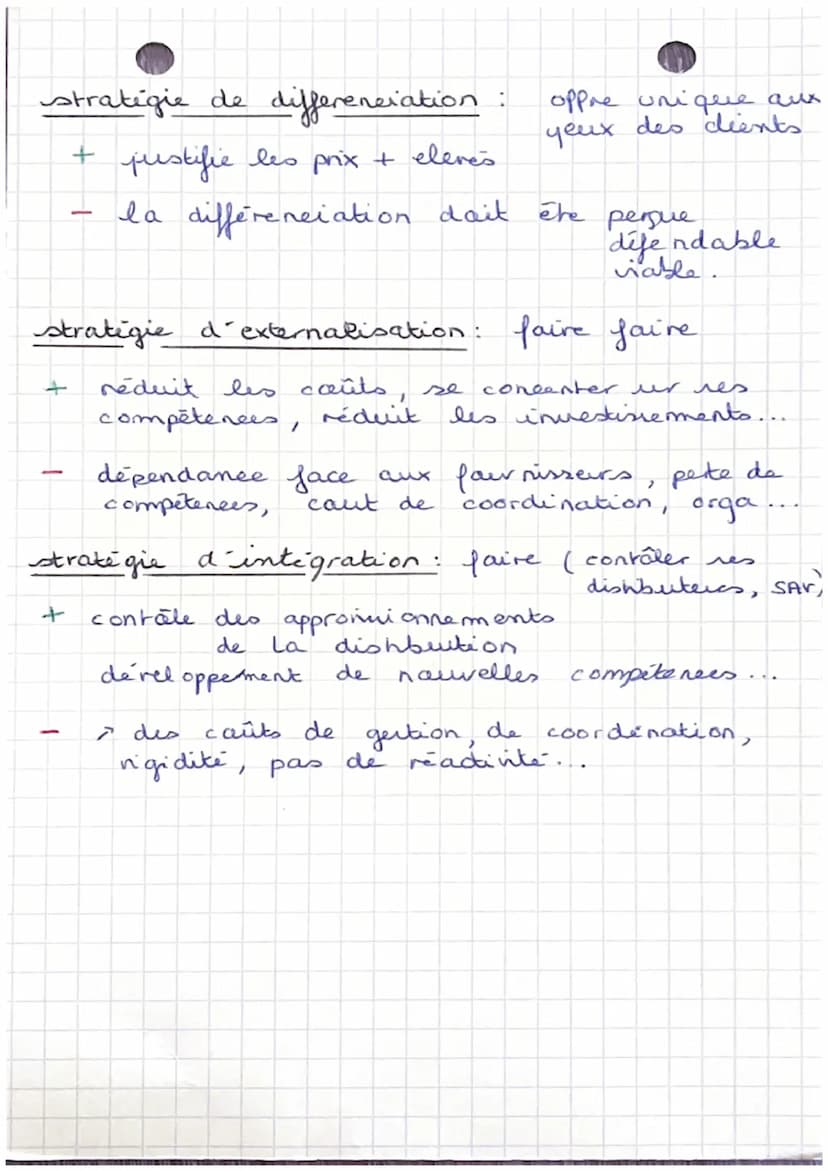 stratégie de différenciation : offre unique aux
yeux des clients
+ justifie les prix + elevés
- la différenciation doit être perçue
défendable
viable.
stratégie d'externalisation : faire faire
+ réduit les coûts, se concenter sur ses
compétences, réduit les investissements...
- dépendance face aux fournisseurs, perte de
compétences, cout de coordination, orga...
stratégie d'intégration : faire (contrôler ses
distributeurs, SAV)
+ contrôle des approvisionnements
de la distribution
développement de nouvelles compétences...
- ↗ des coûts de gestion, de coordination,
rigidité, pas de réactivité...